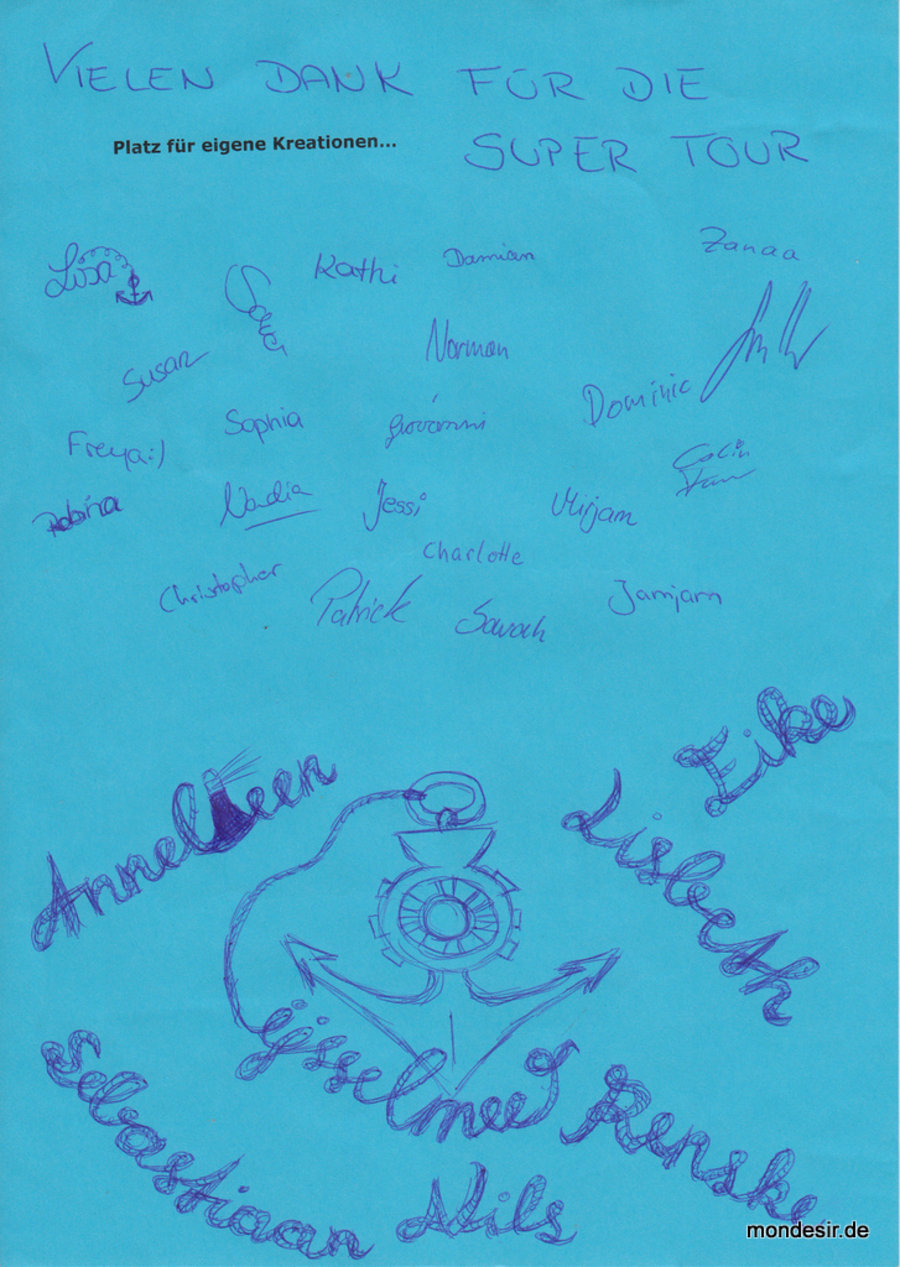 VIELEN DANK FÜR DIE
Platz für eigene Kreationen...
SUPER TOUR
Lisa
Kathi
Damian
Zanaa
Norman
Susan
Dominic
Sophia
Giovanni
Freya:)
Colin
Robina
Nadia
Jessi
Mirjam
Charlotte
Christopher
Patrick
Sarah
Jamjam
Eike
Annelieen
Lisbeth
ijsselmeer
Sebastiaan
Renske
Nils
mondesir.de